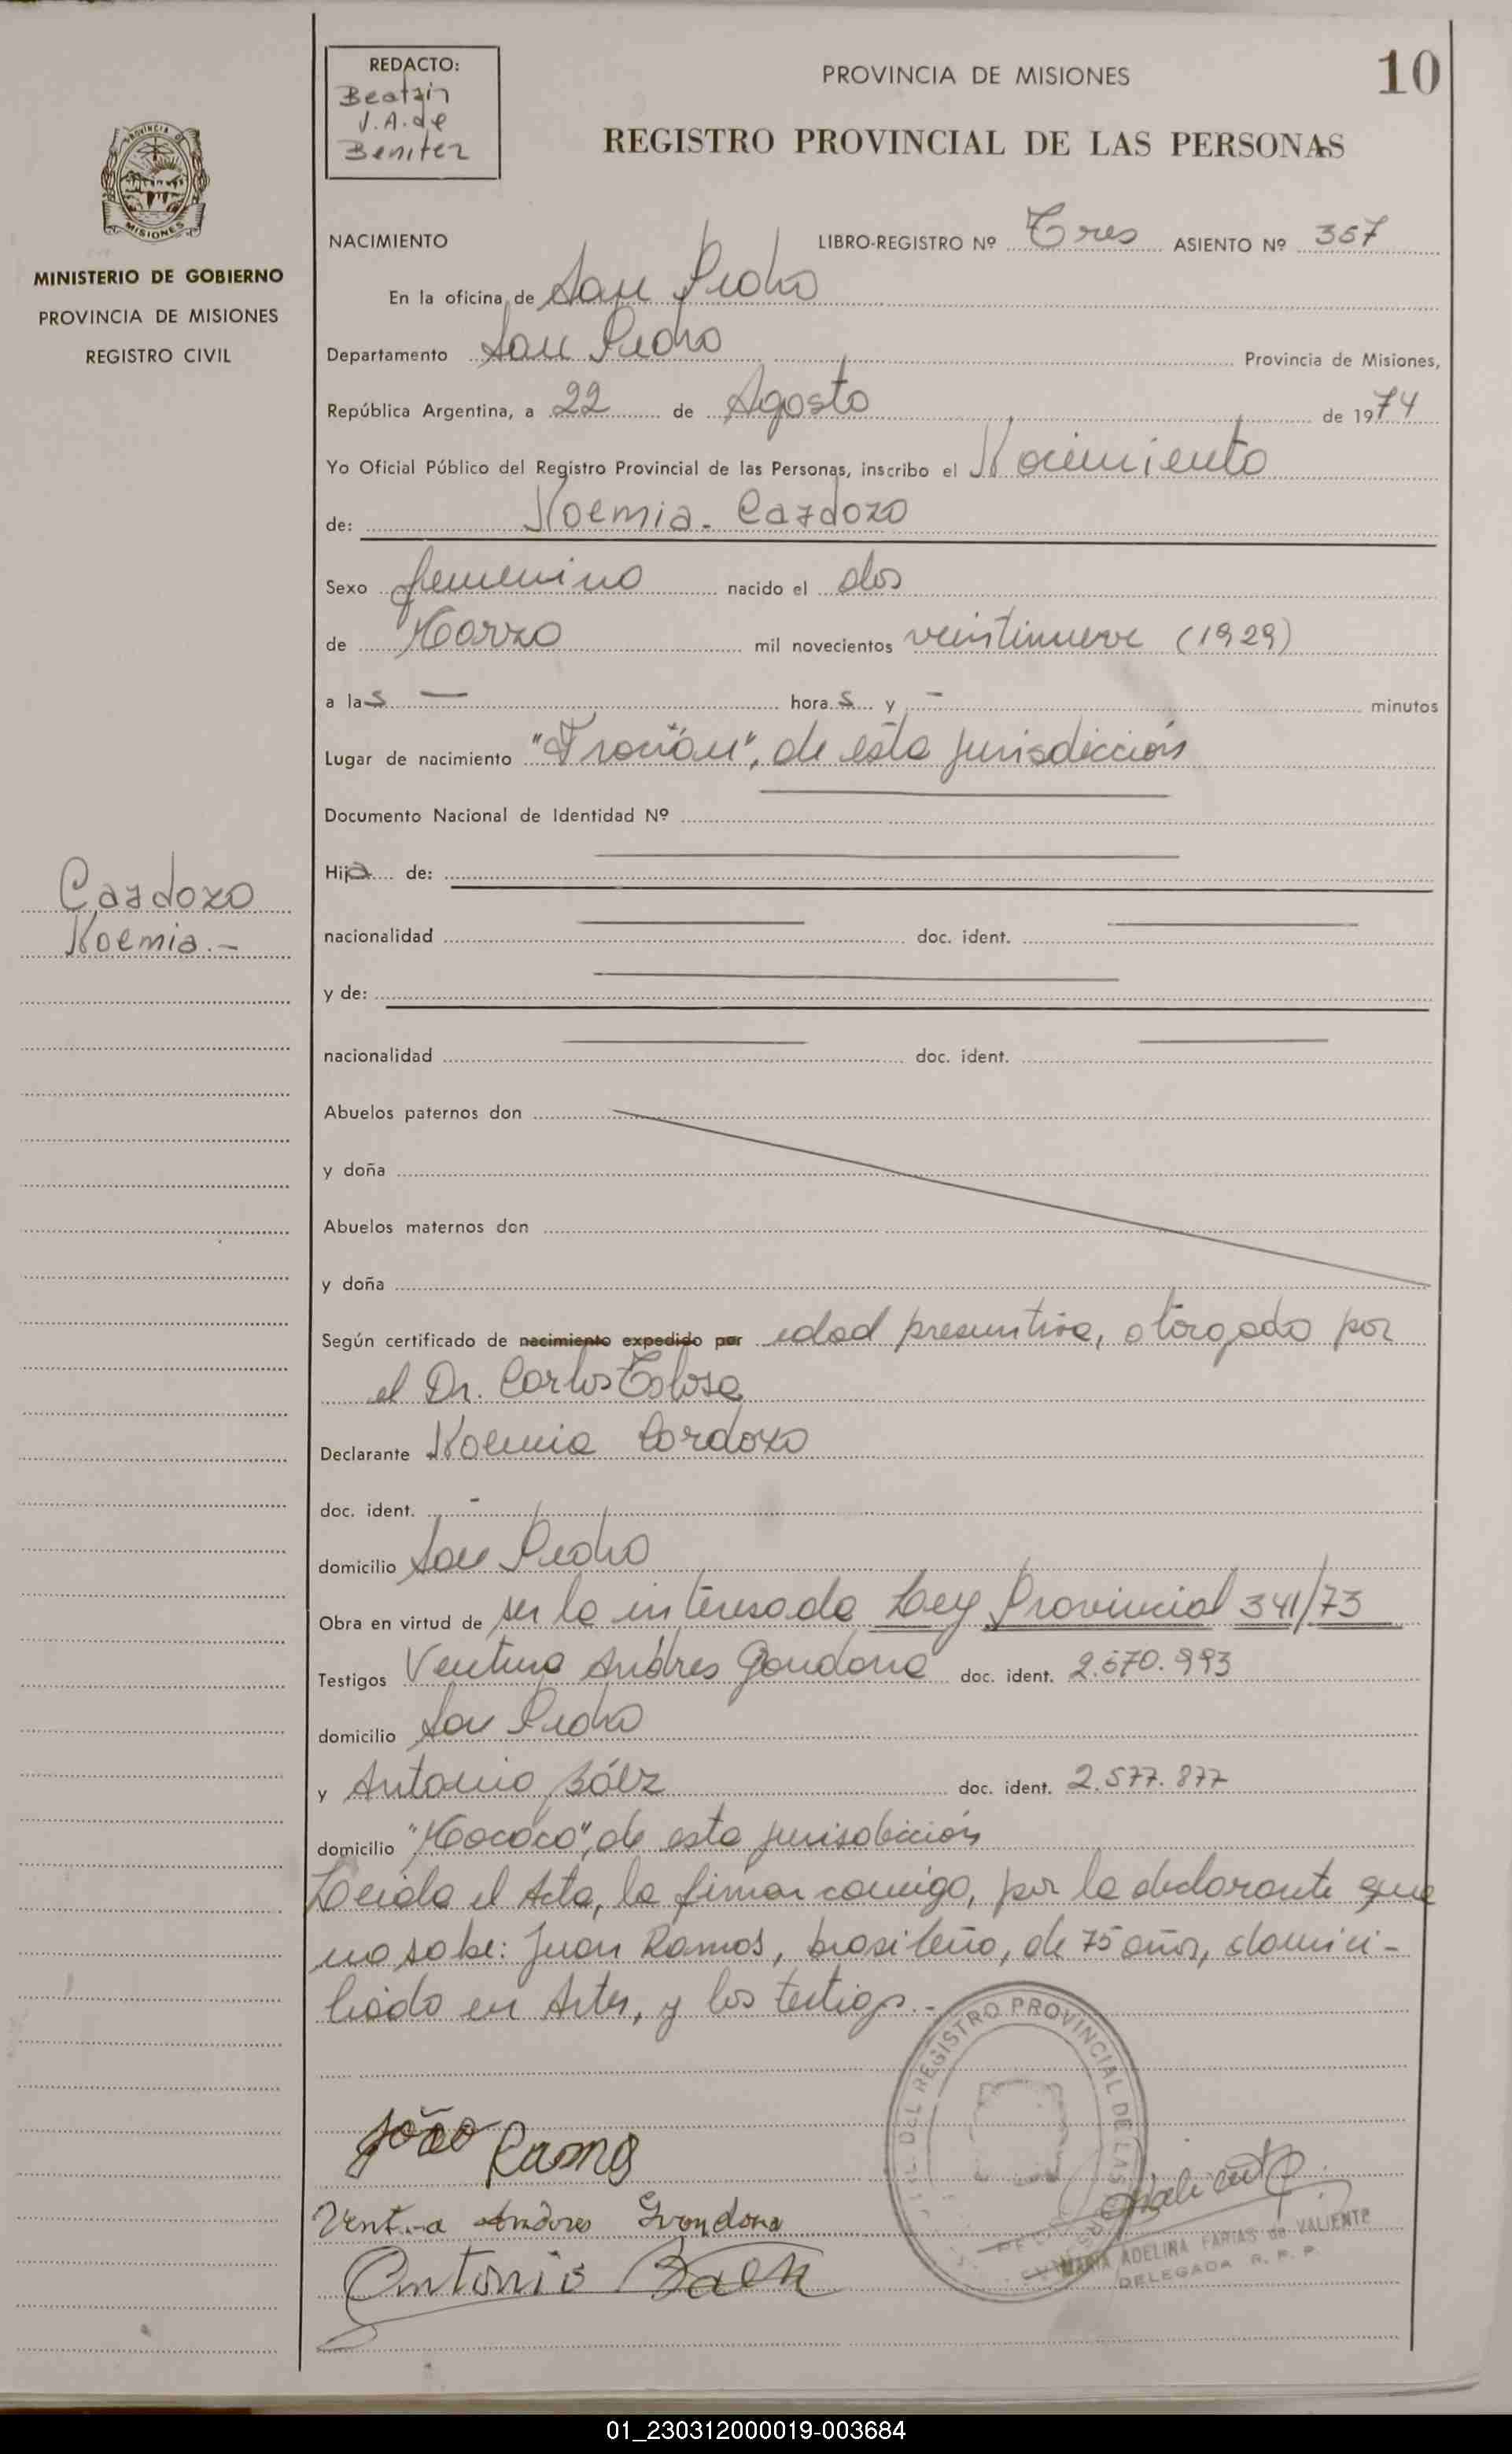 10
REDACTO:
Beatriz
V. A. de
Benitez
PROVINCIA DE MISIONES
REGISTRO PROVINCIAL DE LAS PERSONAS
PROVINCIA DE
MISIONES
MINISTERIO DE GOBIERNO
PROVINCIA DE MISIONES
REGISTRO CIVIL
NACIMIENTO LIBRO-REGISTRO Nº Tres ASIENTO Nº 357
En la oficina de San Pedro
Departamento San Pedro Provincia de Misiones,
República Argentina, a 22 de Agosto de 1974
Yo Oficial Público del Registro Provincial de las Personas, inscribo el Nacimiento
de: Noemia - Cardozo
Sexo femenino nacido el dos
de Marzo mil novecientos veintinueve (1929)
a las — horas y - minutos
Lugar de nacimiento "Fracrán", de esta jurisdicción
Documento Nacional de Identidad Nº
Hija de:
Cardozo
Noemia.-
nacionalidad doc. ident.
y de:
nacionalidad doc. ident.
Abuelos paternos don
y doña
Abuelos maternos don
y doña
Según certificado de nacimiento expedido por edad presuntiva, otorgado por
el Dr. Carlos Tolosa
Declarante Noemia Cardozo
doc. ident. -
domicilio San Pedro
Obra en virtud de ser la interesada Ley Provincial 341/73
Testigos Ventura Andres Gondona doc. ident. 2.670.993
domicilio San Pedro
y Antonio Báez doc. ident. 2.577.877
domicilio "Macaco", de esta jurisdicción
Leida el Acta, la firman conmigo, por la declarante que
no sabe: Juan Ramos, brasileño, de 75 años, domici-
liado en Artes, y los testigos.-
DEL REGISTRO PROVINCIAL DE LAS
João Ramos
Ventura Andres Grondona
Antonio Baez
MARIA ADELINA FARIAS de VALIENTE
DELEGADA R. P. P.
01_230312000019-003684